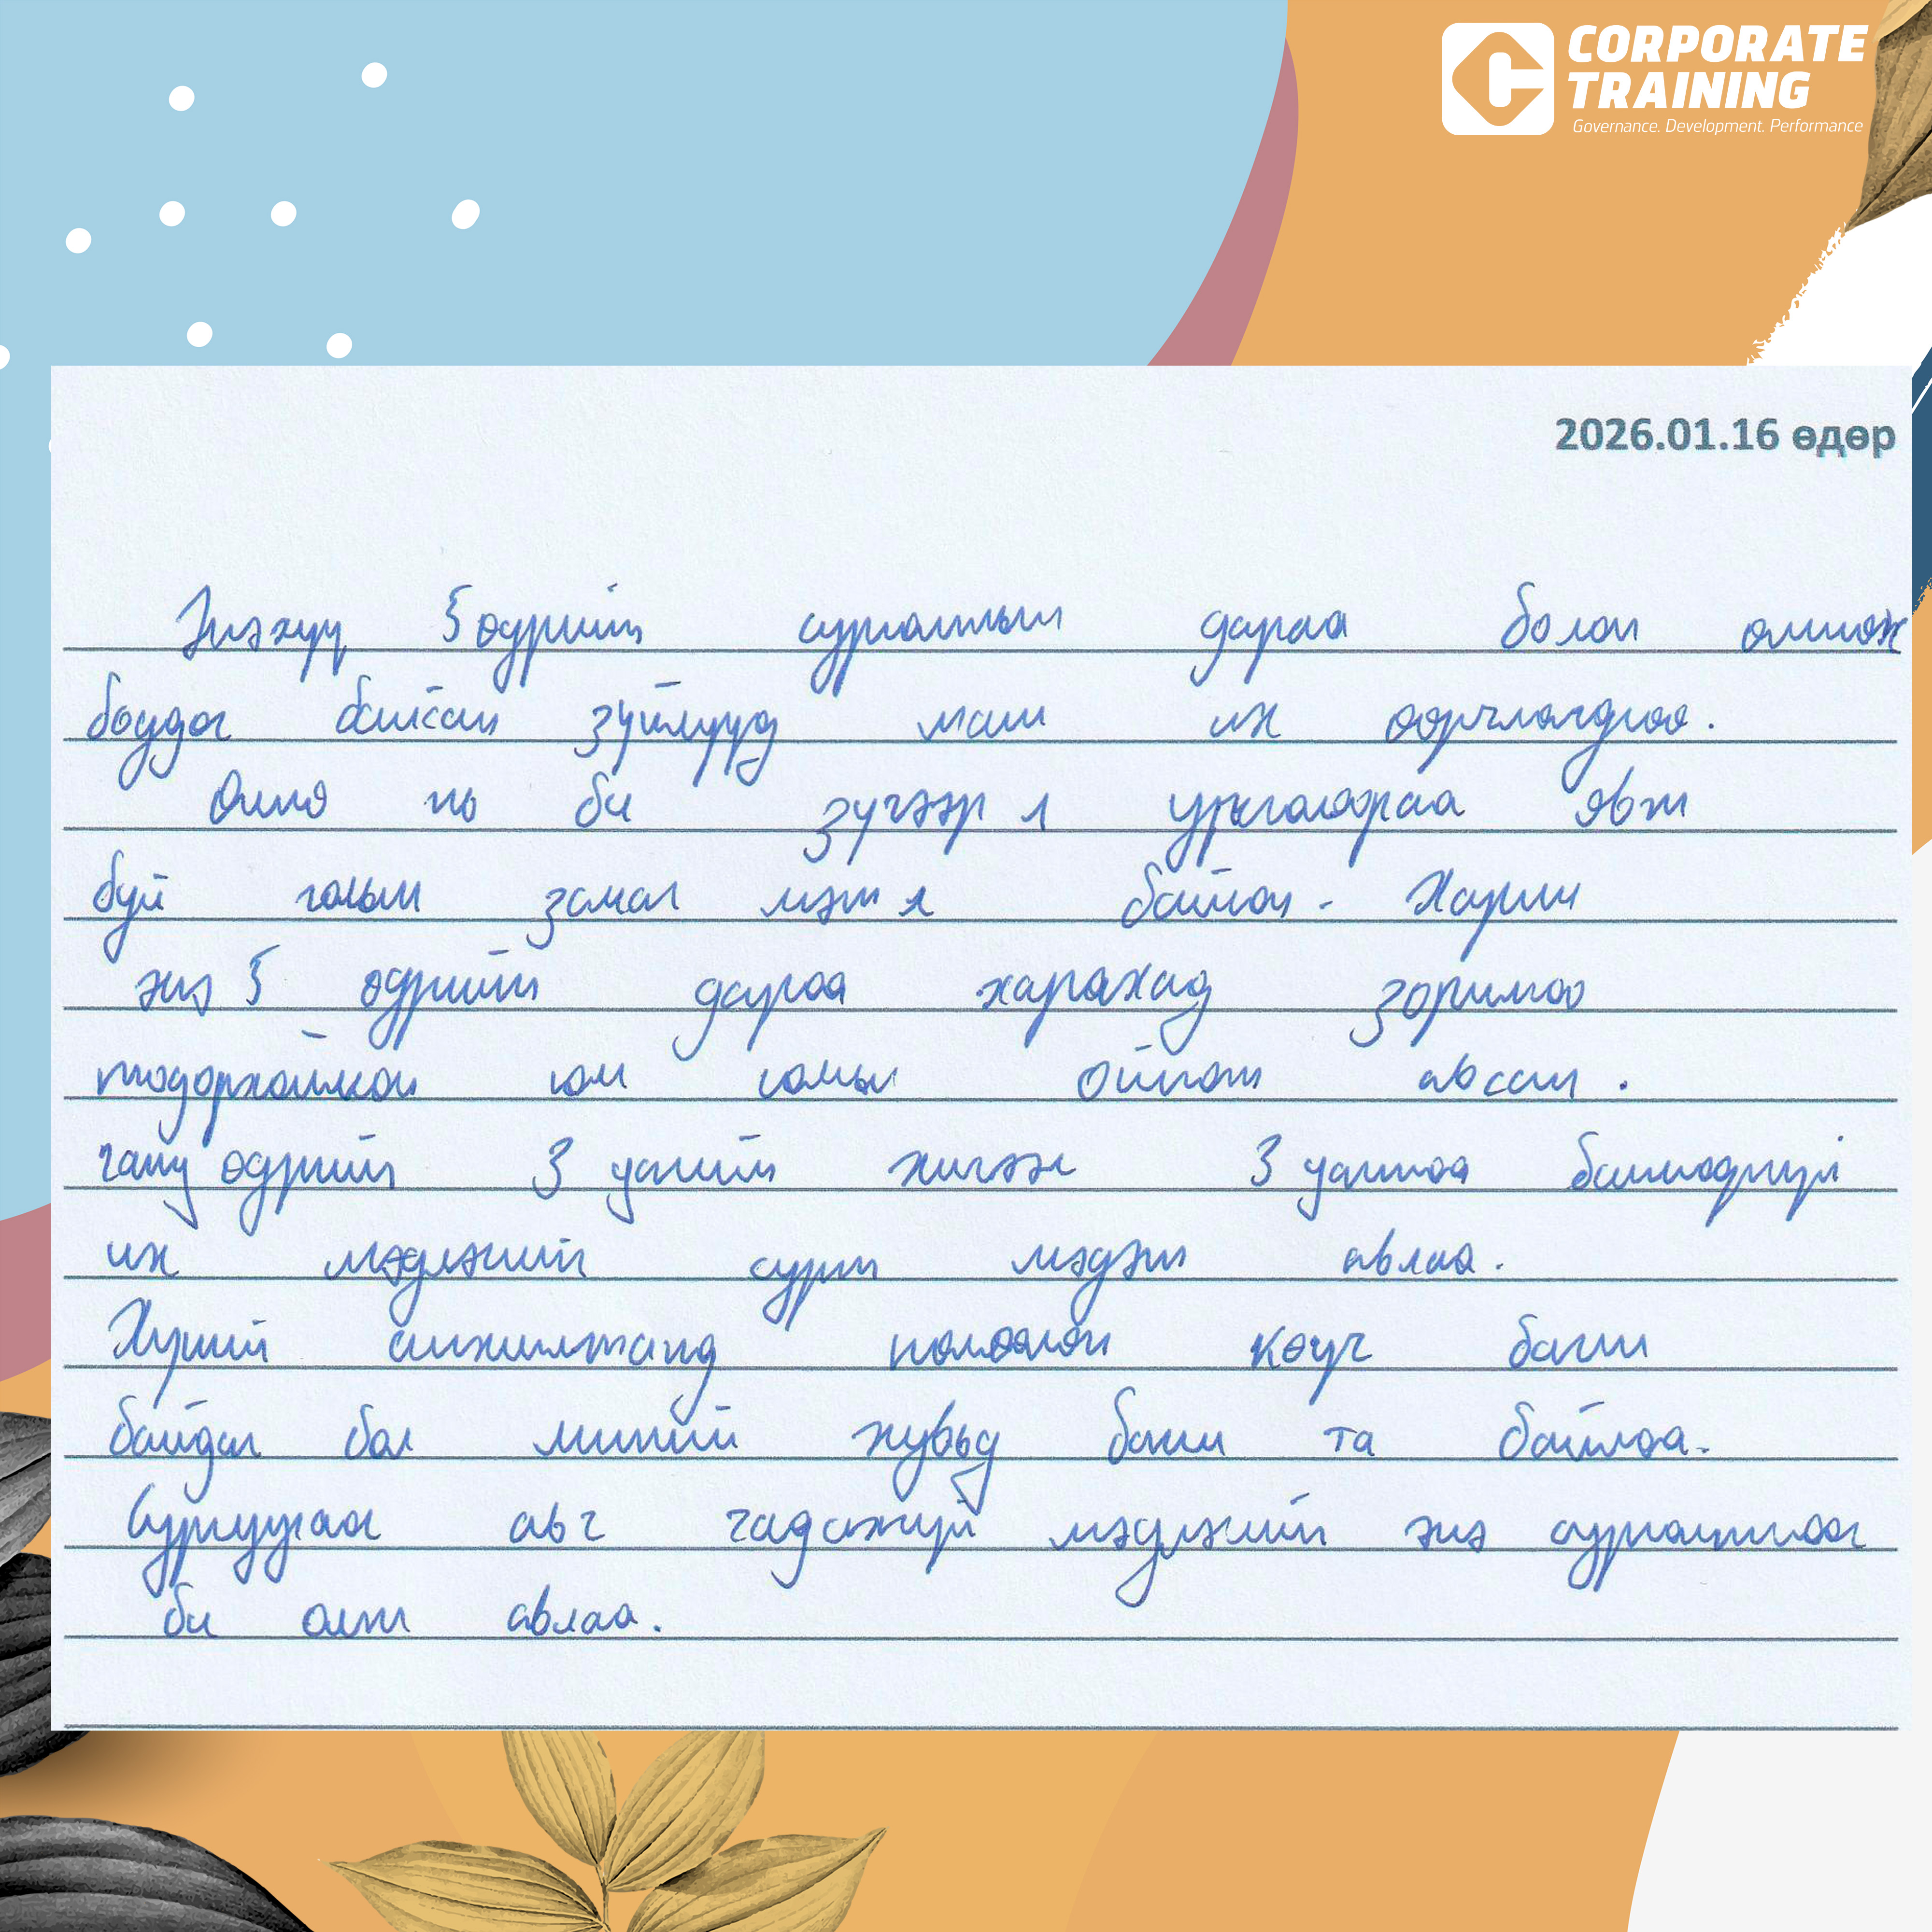 CORPORATE
TRAINING
Governance. Development. Performance
2026.01.16 өдөр
Энэхүү 5 өдрийн сургалтын дараа болон өмнөх
боддог байсан зүйлүүд маш их өөрчлөгдлөө.
Өмнө нь би зүгээр л урсгалаараа явж
буй голын замаг мэт л байсан. Харин
энэ 5 өдрийн дараа харахад зорилгоо
тодорхойлсон юм юмыг ойлгож авсан.
ганц өдрийн 3 цагийн хичээл 3 цагтаа багтамгүй
их мэдлэгийг сурч мэдэж авлаа.
Хүний амжилтанд нөлөөлөх коуч багш
байдаг бол миний хувьд багш та байлаа.
Сургуулиас авч чадахгүй мэдлэгийг энэ сургалтаас
би олж авлаа.